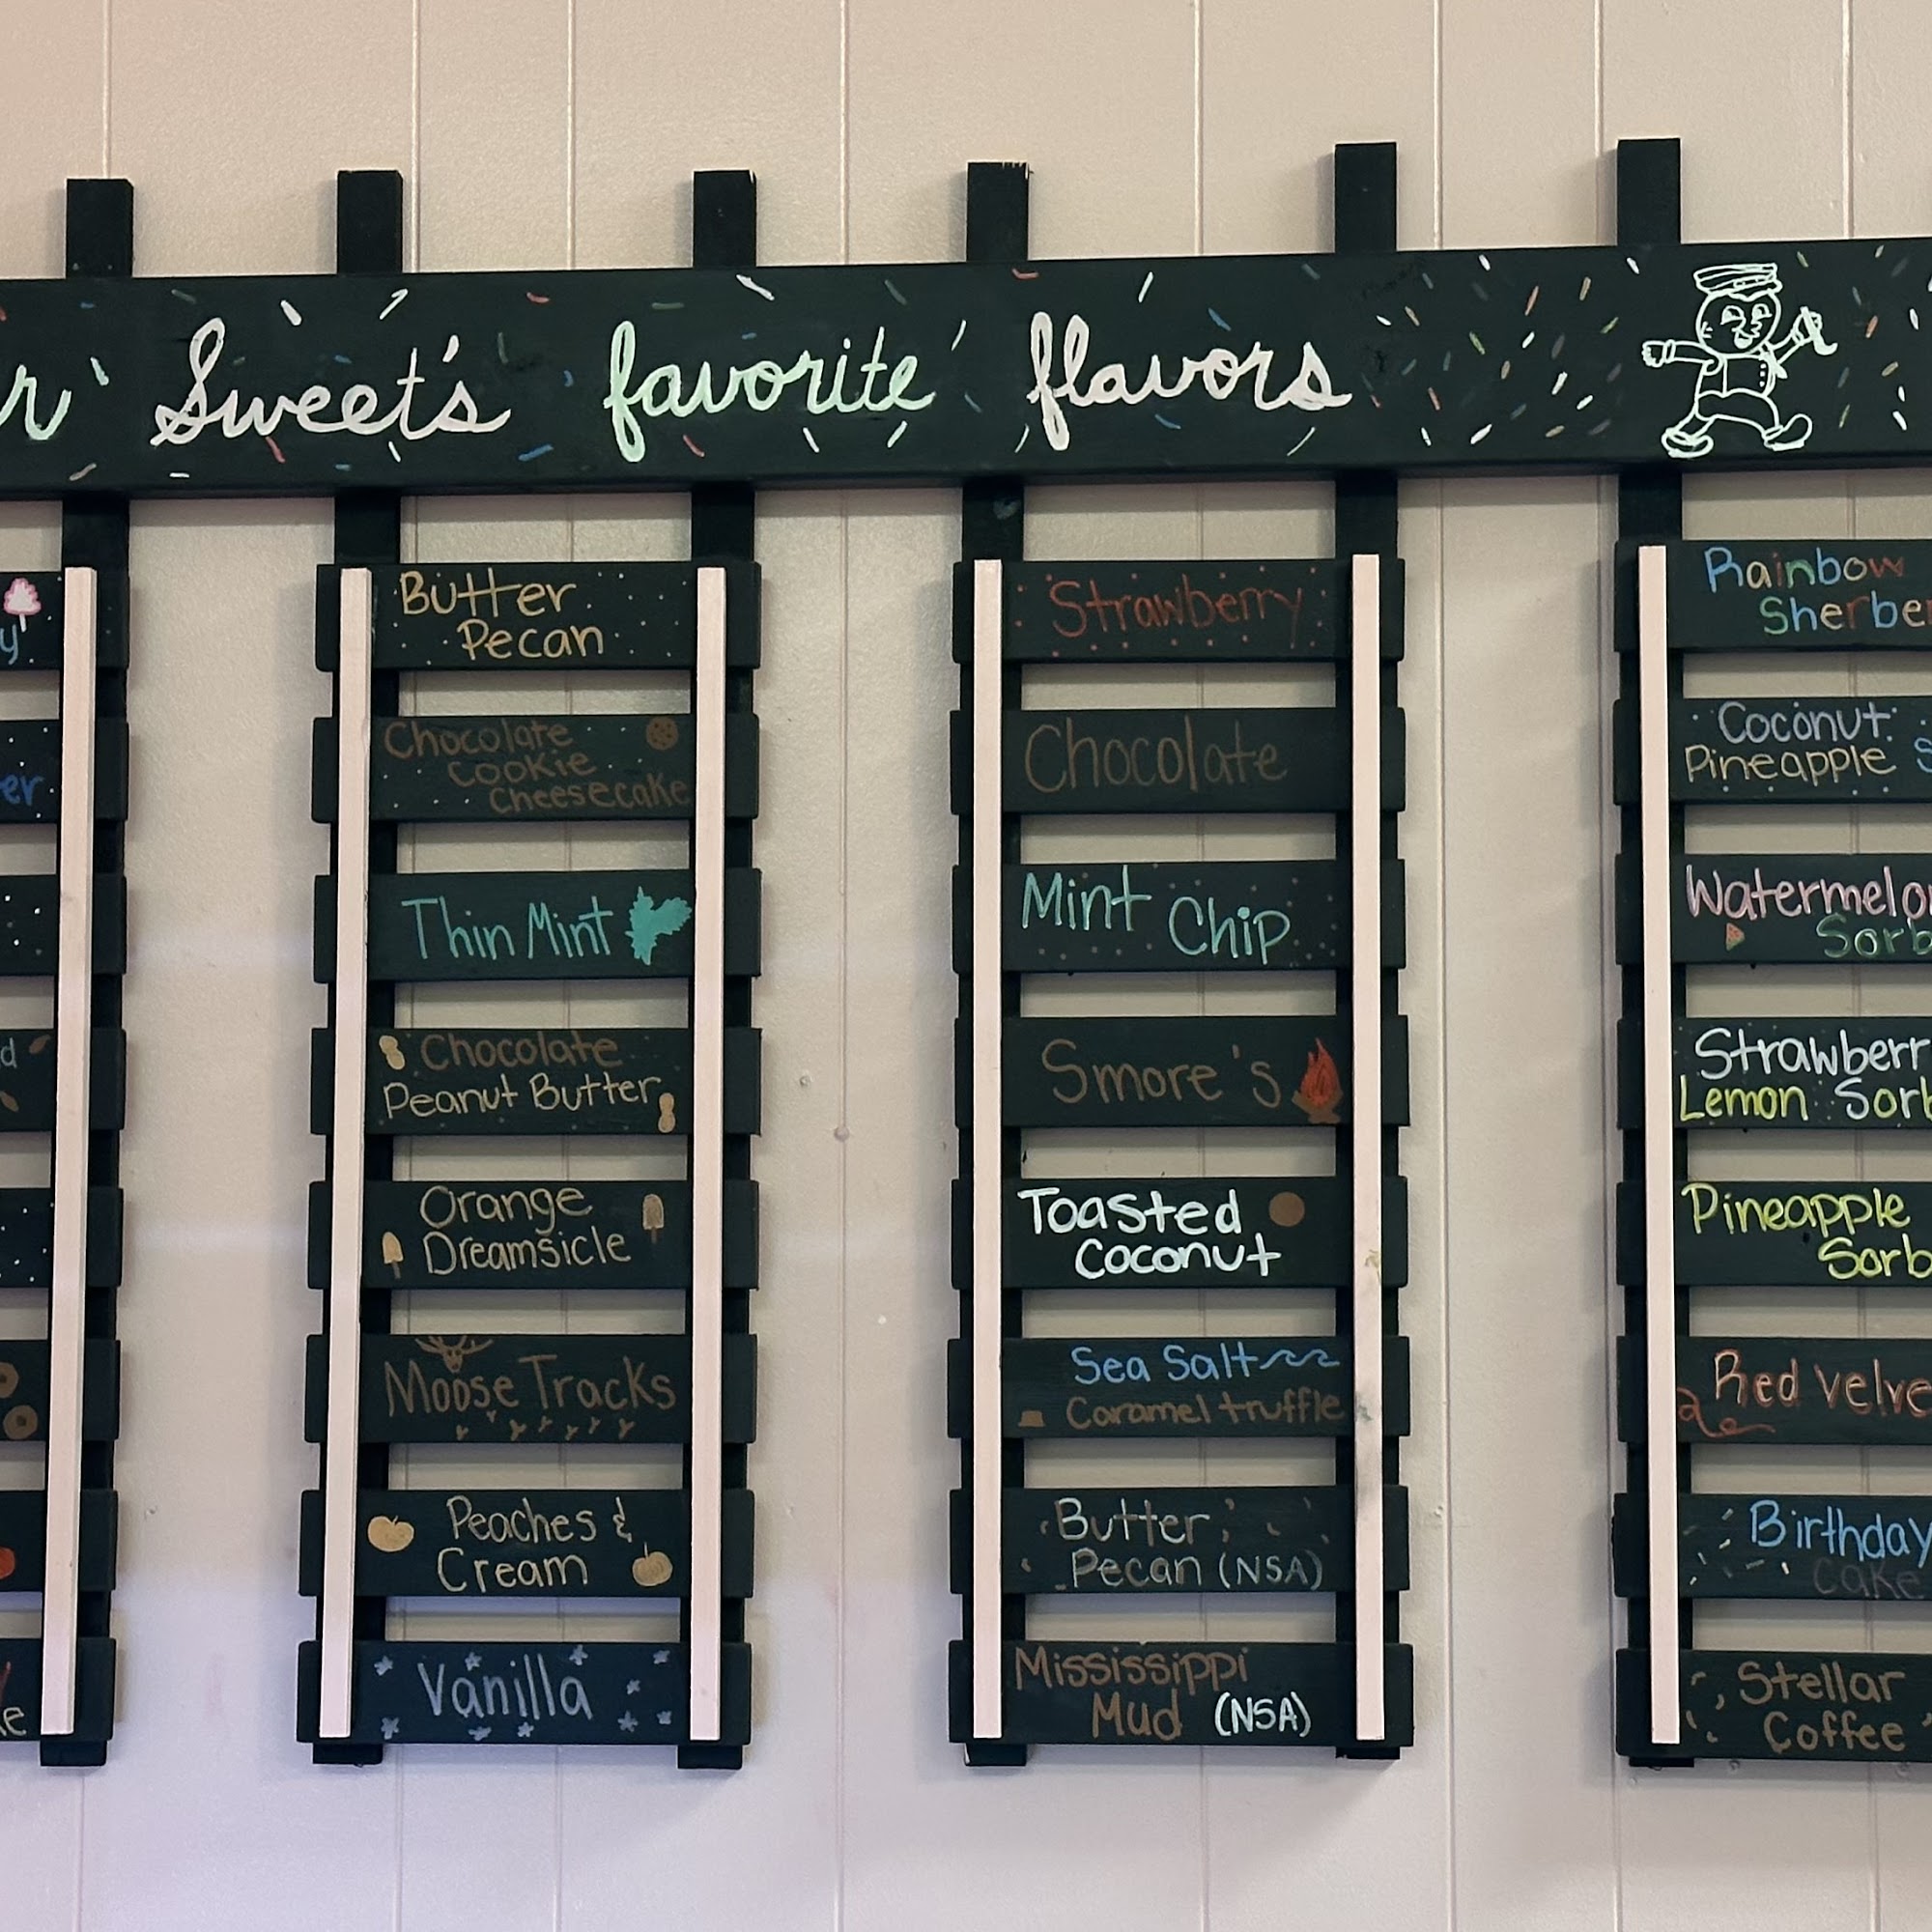 Sweet's favorite flavors
Butter
Pecan
Chocolate
Cookie
Cheesecake
Thin Mint
Chocolate
Peanut Butter
Orange
Dreamsicle
Moose Tracks
Peaches &
Cream
Vanilla
Strawberry
Chocolate
Mint Chip
Smore's
Toasted
Coconut
Sea Salt
Caramel truffle
Butter
Pecan (NSA)
Mississippi
Mud (NSA)
Rainbow
Coconut
Pineapple
Lemon
Pineapple
Red
Birthday
Cake
Stellar
Coffee